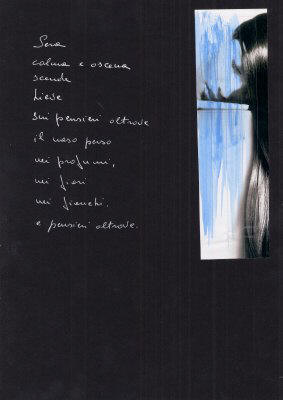 Sera
calma e oscena
scende
lieve
sui pensieri oltrove
il naso perso
nei profumi,
nei fiori
nei fianchi.
e pensieri oltrove.